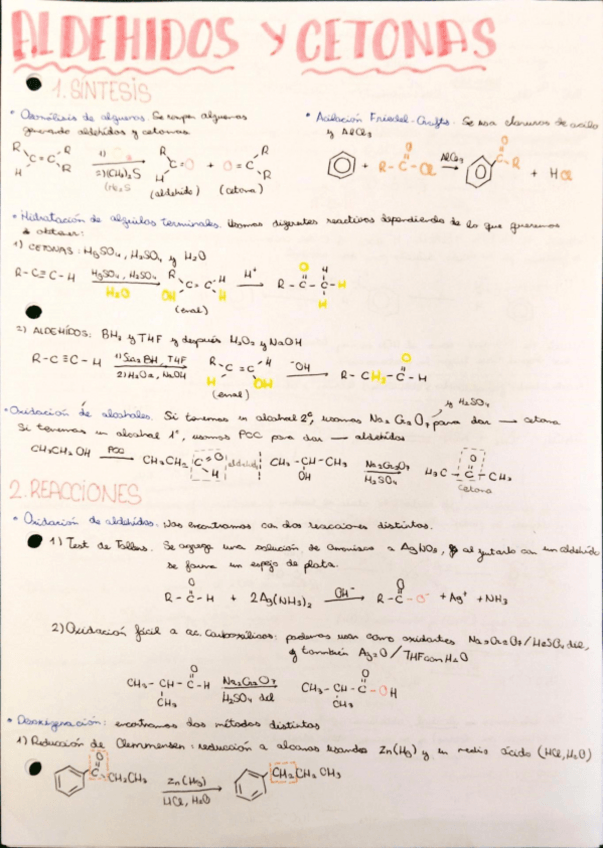 ALDEHIDOS Y CETONAS
1. SÍNTESIS
• Ozonólisis de alquenos. Se rompen alquenos
generando aldehídos y cetonas.
1)
2)(CH₃)₂S
(Me₂S
(aldehído) + (cetona)
• Acilación Friedel-Crafts. Se usa cloruros de acilo
y AlCl₃
+ R-C-Cl AlCl₃ + HCl
• Hidratación de alquilos terminales. Usamos diferentes reactivos dependiendo de lo que queremos
obtener:
1) CETONAS: HgSO₄, H₂SO₄ y H₂O
R-C≡C-H HgSO₄, H₂SO₄ H₂O H⁺
(enol)
2) ALDEHÍDOS: BH₃ y THF y después H₂O₂ y NaOH
R-C≡C-H 1)Sia₂BH, THF 2)H₂O₂, NaOH ⁻OH R-CH₂-C-H
(enol)
• Oxidación de alcoholes. Si tenemos un alcohol 2º, usamos Na₂Cr₂O₇ y H₂SO₄ para dar — cetona
Si tenemos un alcohol 1º, usamos PCC para dar — aldehídos
CH₃CH₂OH PCC CH₃CH₂ aldehído CH₃-CH-CH₃ OH Na₂Cr₂O₇ H₂SO₄ H₃C-C-CH₃
cetona
2. REACCIONES
• Oxidación de aldehídos. Nos encontramos con dos reacciones distintas.
1) Test de Tollens. Se agrega una solución de amoniaco a AgNO₃, y al juntarlo con un aldehído
se forma un espejo de plata.
R-C-H + 2Ag(NH₃)₂ OH⁻ R-C-O⁻ + Ag⁺ + NH₃
2) Oxidación fácil a ac. carboxílicos: podemos usar como oxidantes Na₂Cr₂O₇/H₂SO₄ dil,
y también Ag₂O/THF con H₂O
CH₃-CH-C-H CH₃ Na₂Cr₂O₇ H₂SO₄ dil CH₃-CH-C-OH CH₃
• Desoxigenación: encontramos dos métodos distintos
1) Reducción de Clemmensen: reducción a alcanos usando Zn(Hg) y un medio ácido (HCl, H₂O)
CH₂CH₃ Zn(Hg) HCl, H₂O CH₂CH₂CH₃